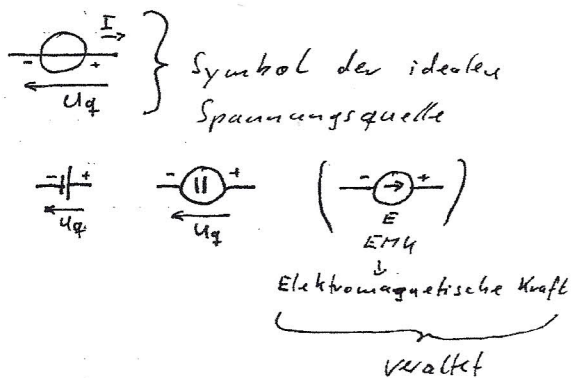 I
- +
Uq
Symbol der idealen
Spannungsquelle
- +
Uq
- +
Uq
- +
E
EMK
Elektromagnetische Kraft
veraltet